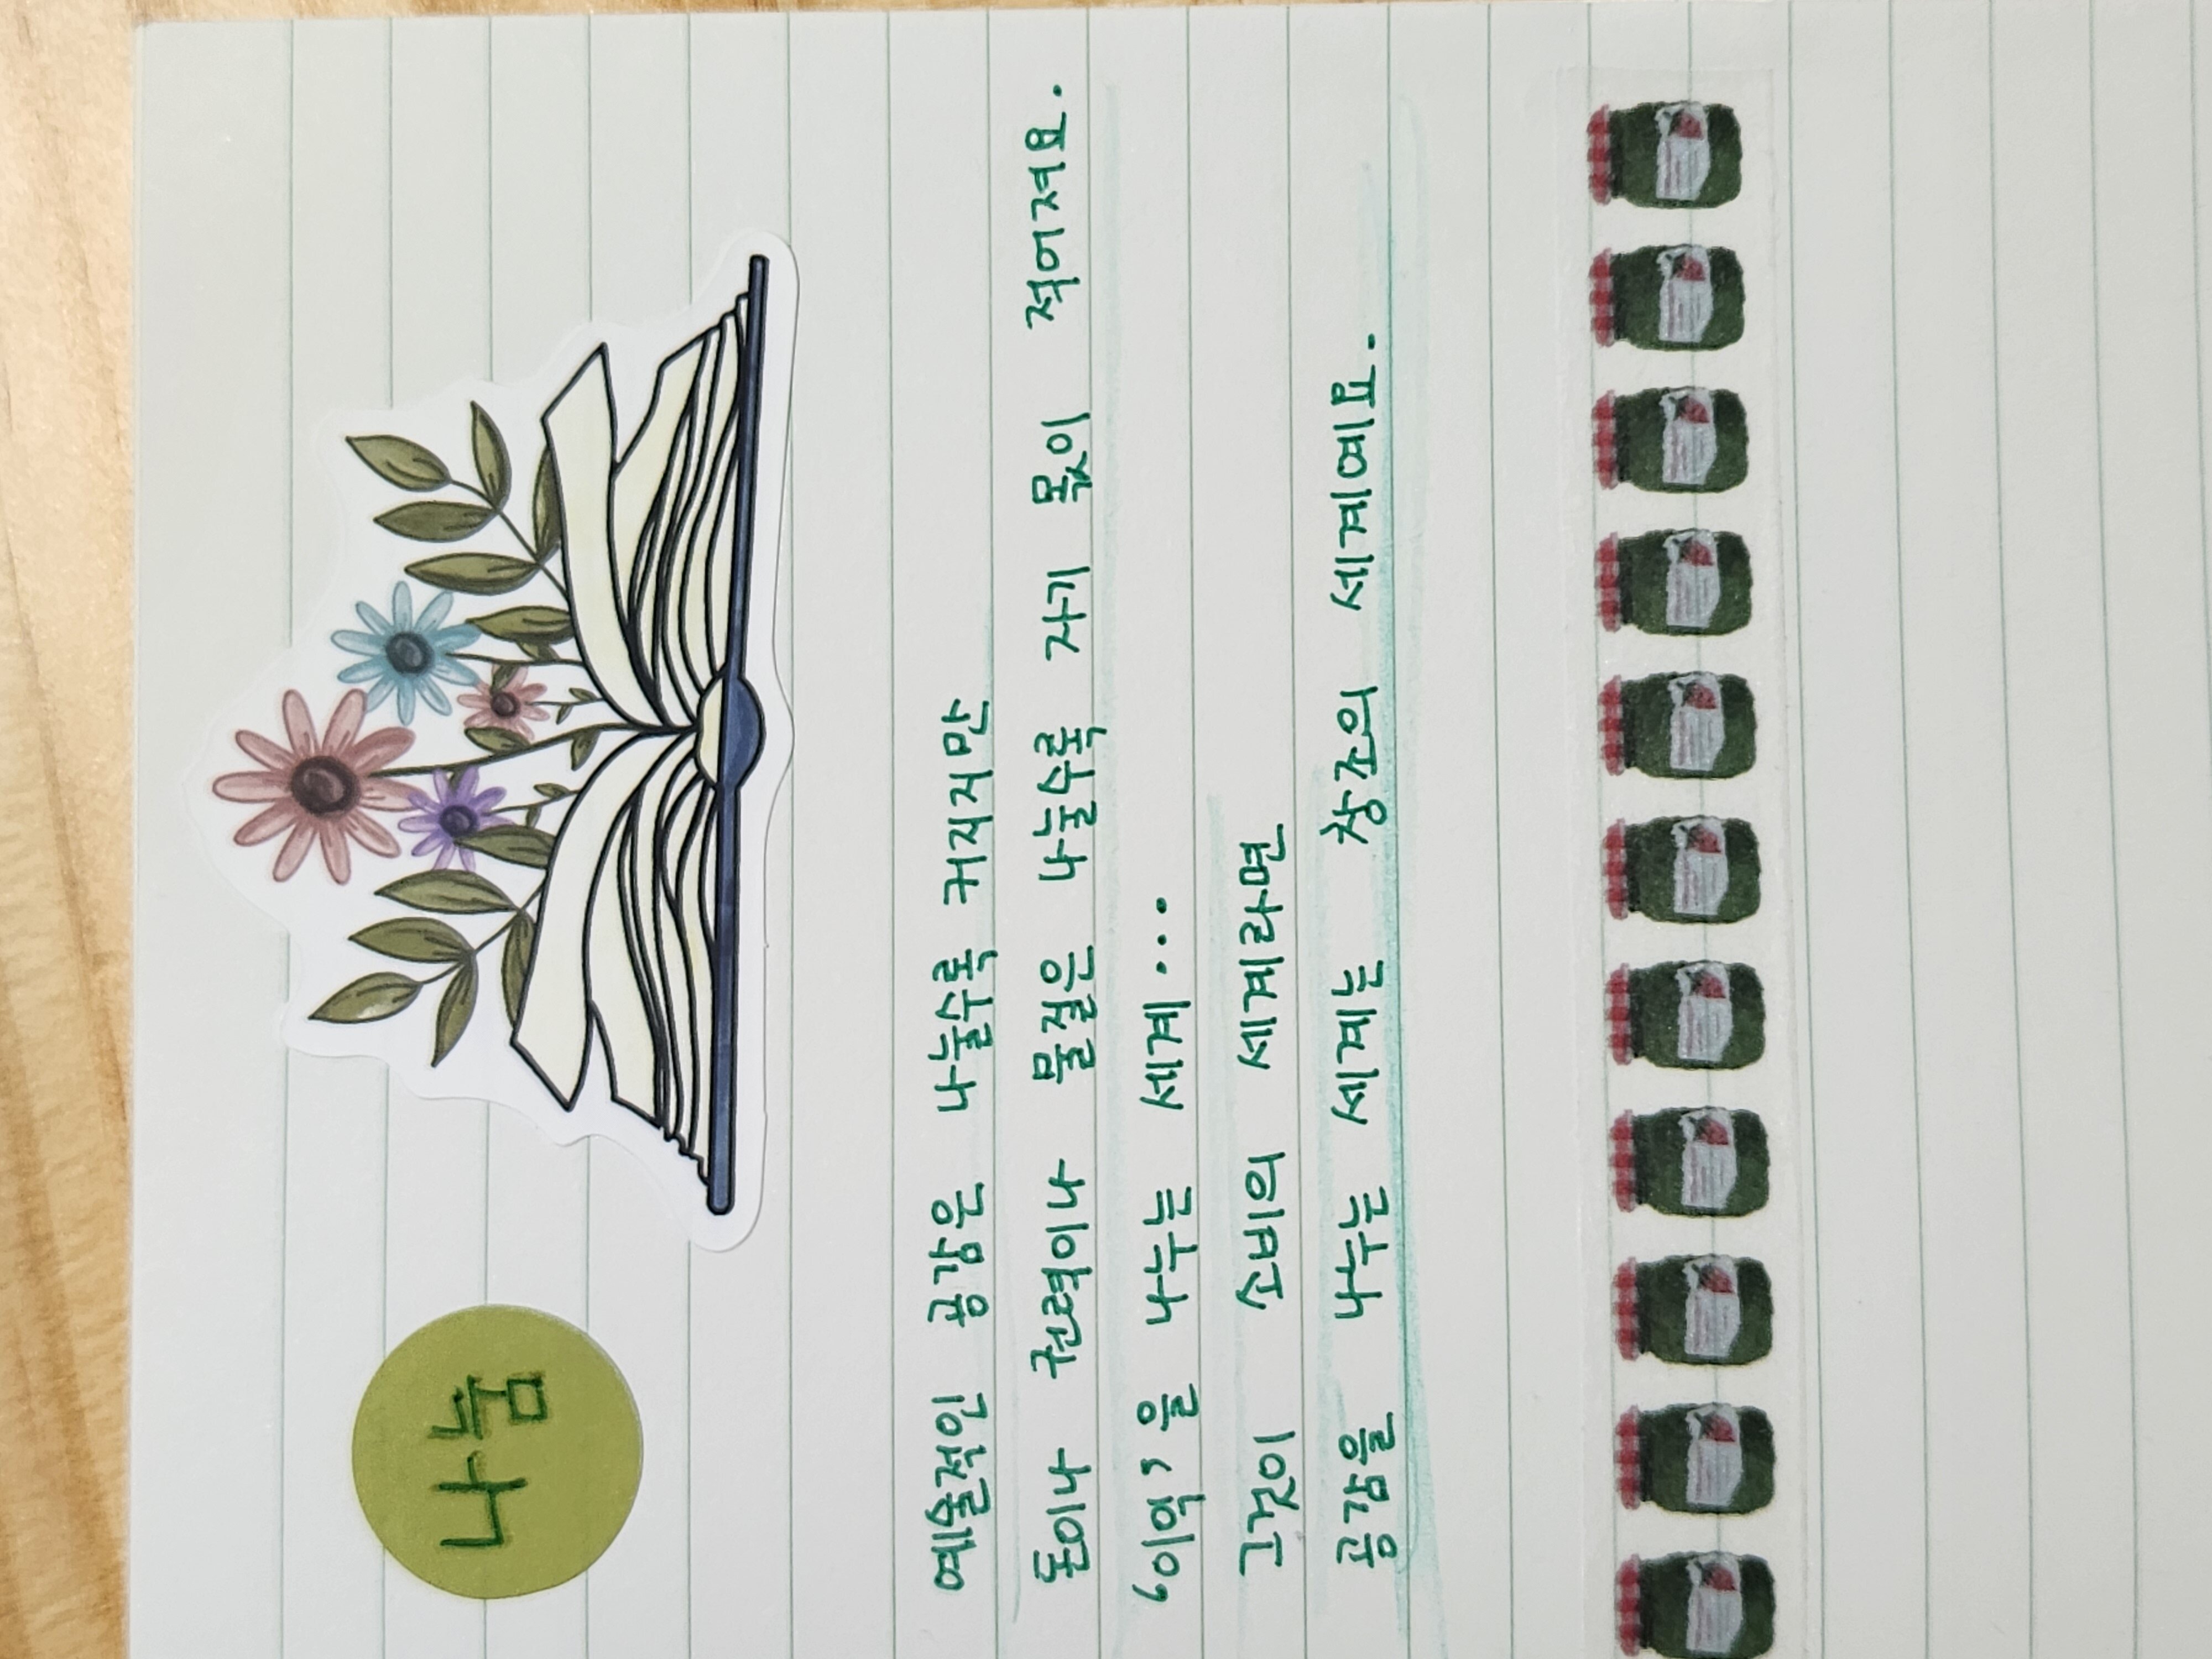 나눔
예술적인 공감은 나눌수록 커지지만
돈이나 권력이나 물질은 나눌수록 자기 몫이 적어져요.
'이익'을 나누는 세계...
그것이 소비의 세계라면
공감을 나누는 세계는 창조의 세계예요.